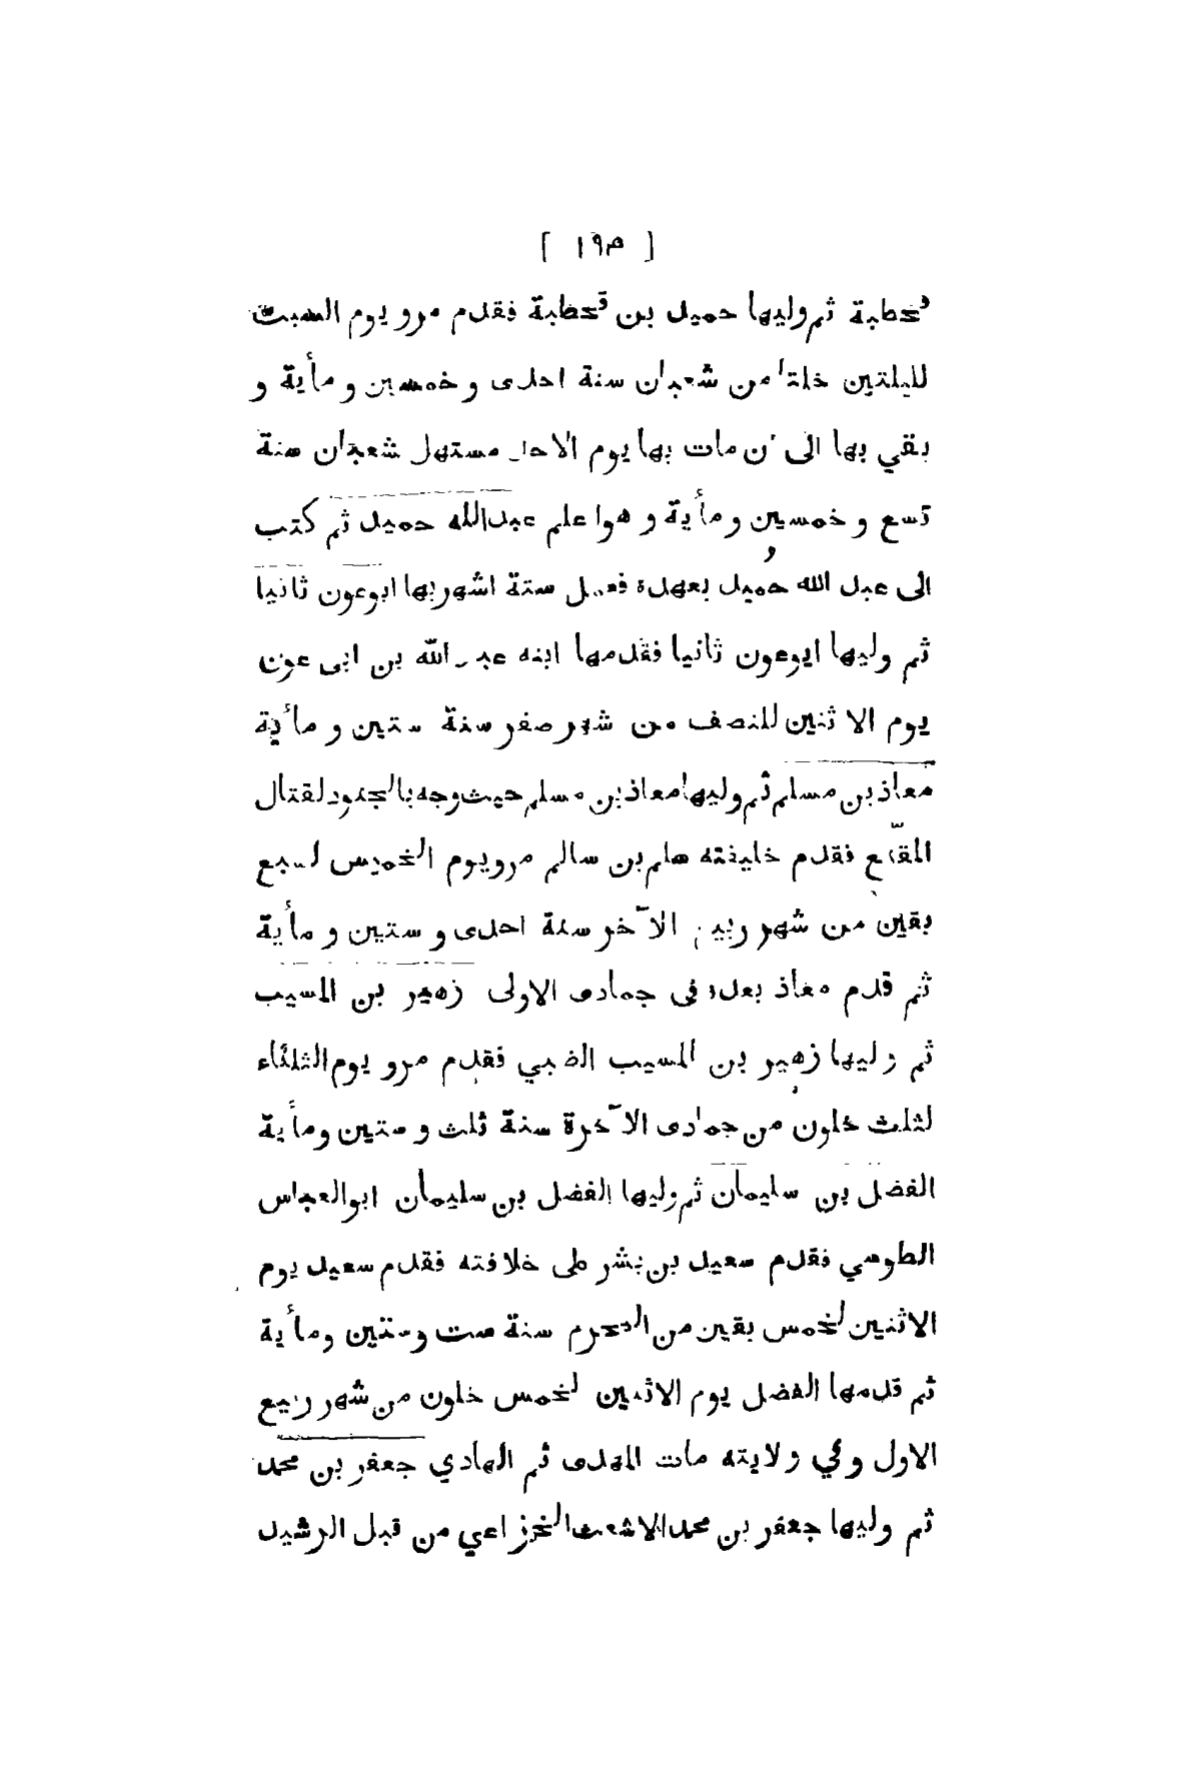 [ ١٩٣ ]
قحطبة ثم وليها حميد بن قحطبة فقدم مرو يوم السبت
لليلتين خلتا من شعبان سنة احدى و خمسين و مأية و
بقي بها الى ان مات بها يوم الاحد مستهل شعبان سنة
تسع و خمسين و مأية و هوا علم عبدالله حميد ثم كتب
الى عبد الله حُميد بعهده فعمل ستة اشهر بها ابوعون ثانيا
ثم وليها ابوعون ثانيا فقدمها ابنه عبد الله بن ابى عون
يوم الاثنين للنصف من شهر صفر سنة ستين و مأية
معاذ بن مسلم ثم وليها معاذ بن مسلم حيث وجه بالجنود لقتال
المقنّع فقدم خليفته سلم بن سالم مرو يوم الخميس لسبع
بقين من شهر ربيع الآخر سنة احدى و ستين و مأية
ثم قدم معاذ بعده فى جمادى الاولى زهير بن المسيب
ثم وليها زهير بن المسيب الضبي فقدم مرو يوم الثلثاء
لثلث خلون من جمادى الآخرة سنة ثلث و ستين ومأية
الفضل بن سليمان ثم وليها الفضل بن سليمان ابوالعباس
الطوسي فقدم سعيد بن بشر على خلافته فقدم سعيد يوم
الاثنين لخمس بقين من المحرم سنة ست وستين ومأية
ثم قدمها الفضل يوم الاثنين لخمس خلون من شهر ربيع
الاول وفي ولايته مات المهدى ثم الهادي جعفر بن محمد
ثم وليها جعفر بن محمد الاشعث الخزاعي من قبل الرشيد